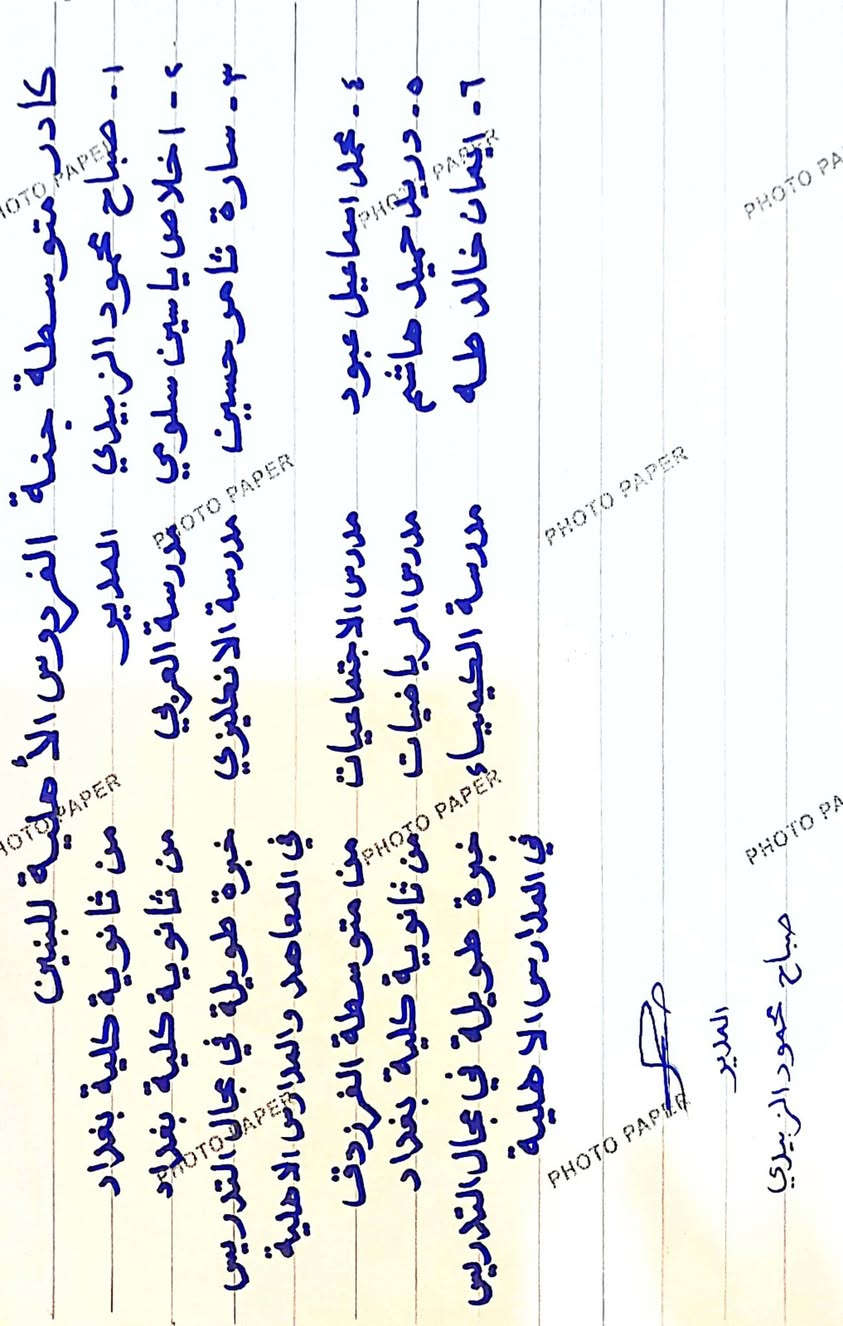 كادر متوسطة جنة الفردوس الأهلية للبنين
١- صباح محمود الزبيدي المدير من ثانوية كلية بغداد
٢- اخلاص ياسين سلومي مدرسة العربي من ثانوية كلية بغداد
٣- سارة ثامر حسين مدرسة الانكليزي خبرة طويلة في مجال التدريس
في المعاهد والمدارس الاهلية
٤- محمد اسماعيل عبود مدرس الاجتماعيات من متوسطة الفرزدق
٥- دريد حميد هاشم مدرس الرياضيات من ثانوية كلية بغداد
٦- ايمان خالد طه مدرسة الكيمياء خبرة طويلة في مجال التدريس
في المدارس الاهلية
المدير
صباح محمود الزبيدي
PHOTO PAPER
PHOTO PAPER
PHOTO PAPER
PHOTO PAPER
PHOTO PAPER
PHOTO PAPER
PHOTO PAPER
PHOTO PAPER
PHOTO PA
PHOTO PA